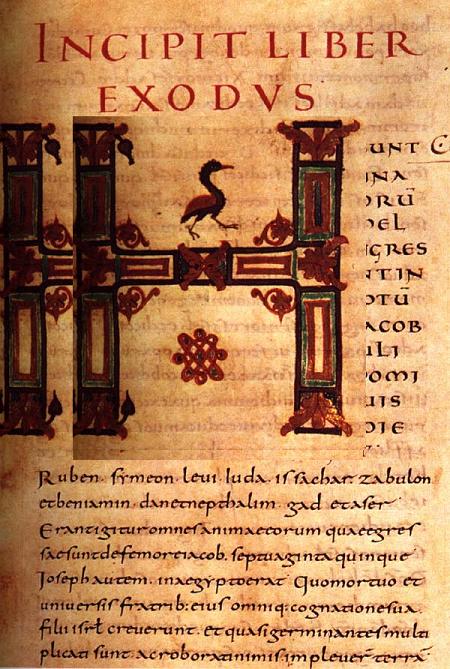 INCIPIT LIBER
EXODVS
H
UNT
INA
ORŪ
EL
GRES
TIN
OTŪ
ACOB
ULI
OMI
UIS
DIE
Ruben. symeon. leui. iuda. issachar. zabulon
et beniamin. dan et nepthalim. gad et aser
Erant igitur omnes animae eorum quae egres
sae sunt de femore iacob. septuaginta quinque
Ioseph autem. in aegypto erat Quo mortuo et
uniuersis fratrib: eius omniq: cognatione sua.
filii isrł creuerunt. et quasi germinantes multi
plicati sunt. ac roborati nimis impleuer̄ terrā